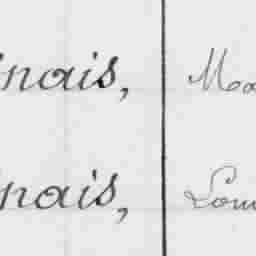 inais, Ma
nais, Loui